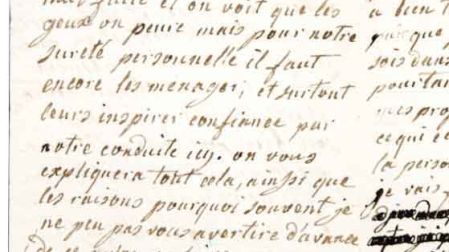 et on voit que les
geux on peure mais pour notre
sureté personnelle il faut
encore les menager; et surtout
leurs inspirer confiance par
notre conduite icy. on vous
expliquera tout cela, ainsi que
les raisons pourquoi souvent je
ne peu pas vous avertire d'avance
a bien
que
sois dans
pourtan
mes prop
ce qui
la perso
je vais